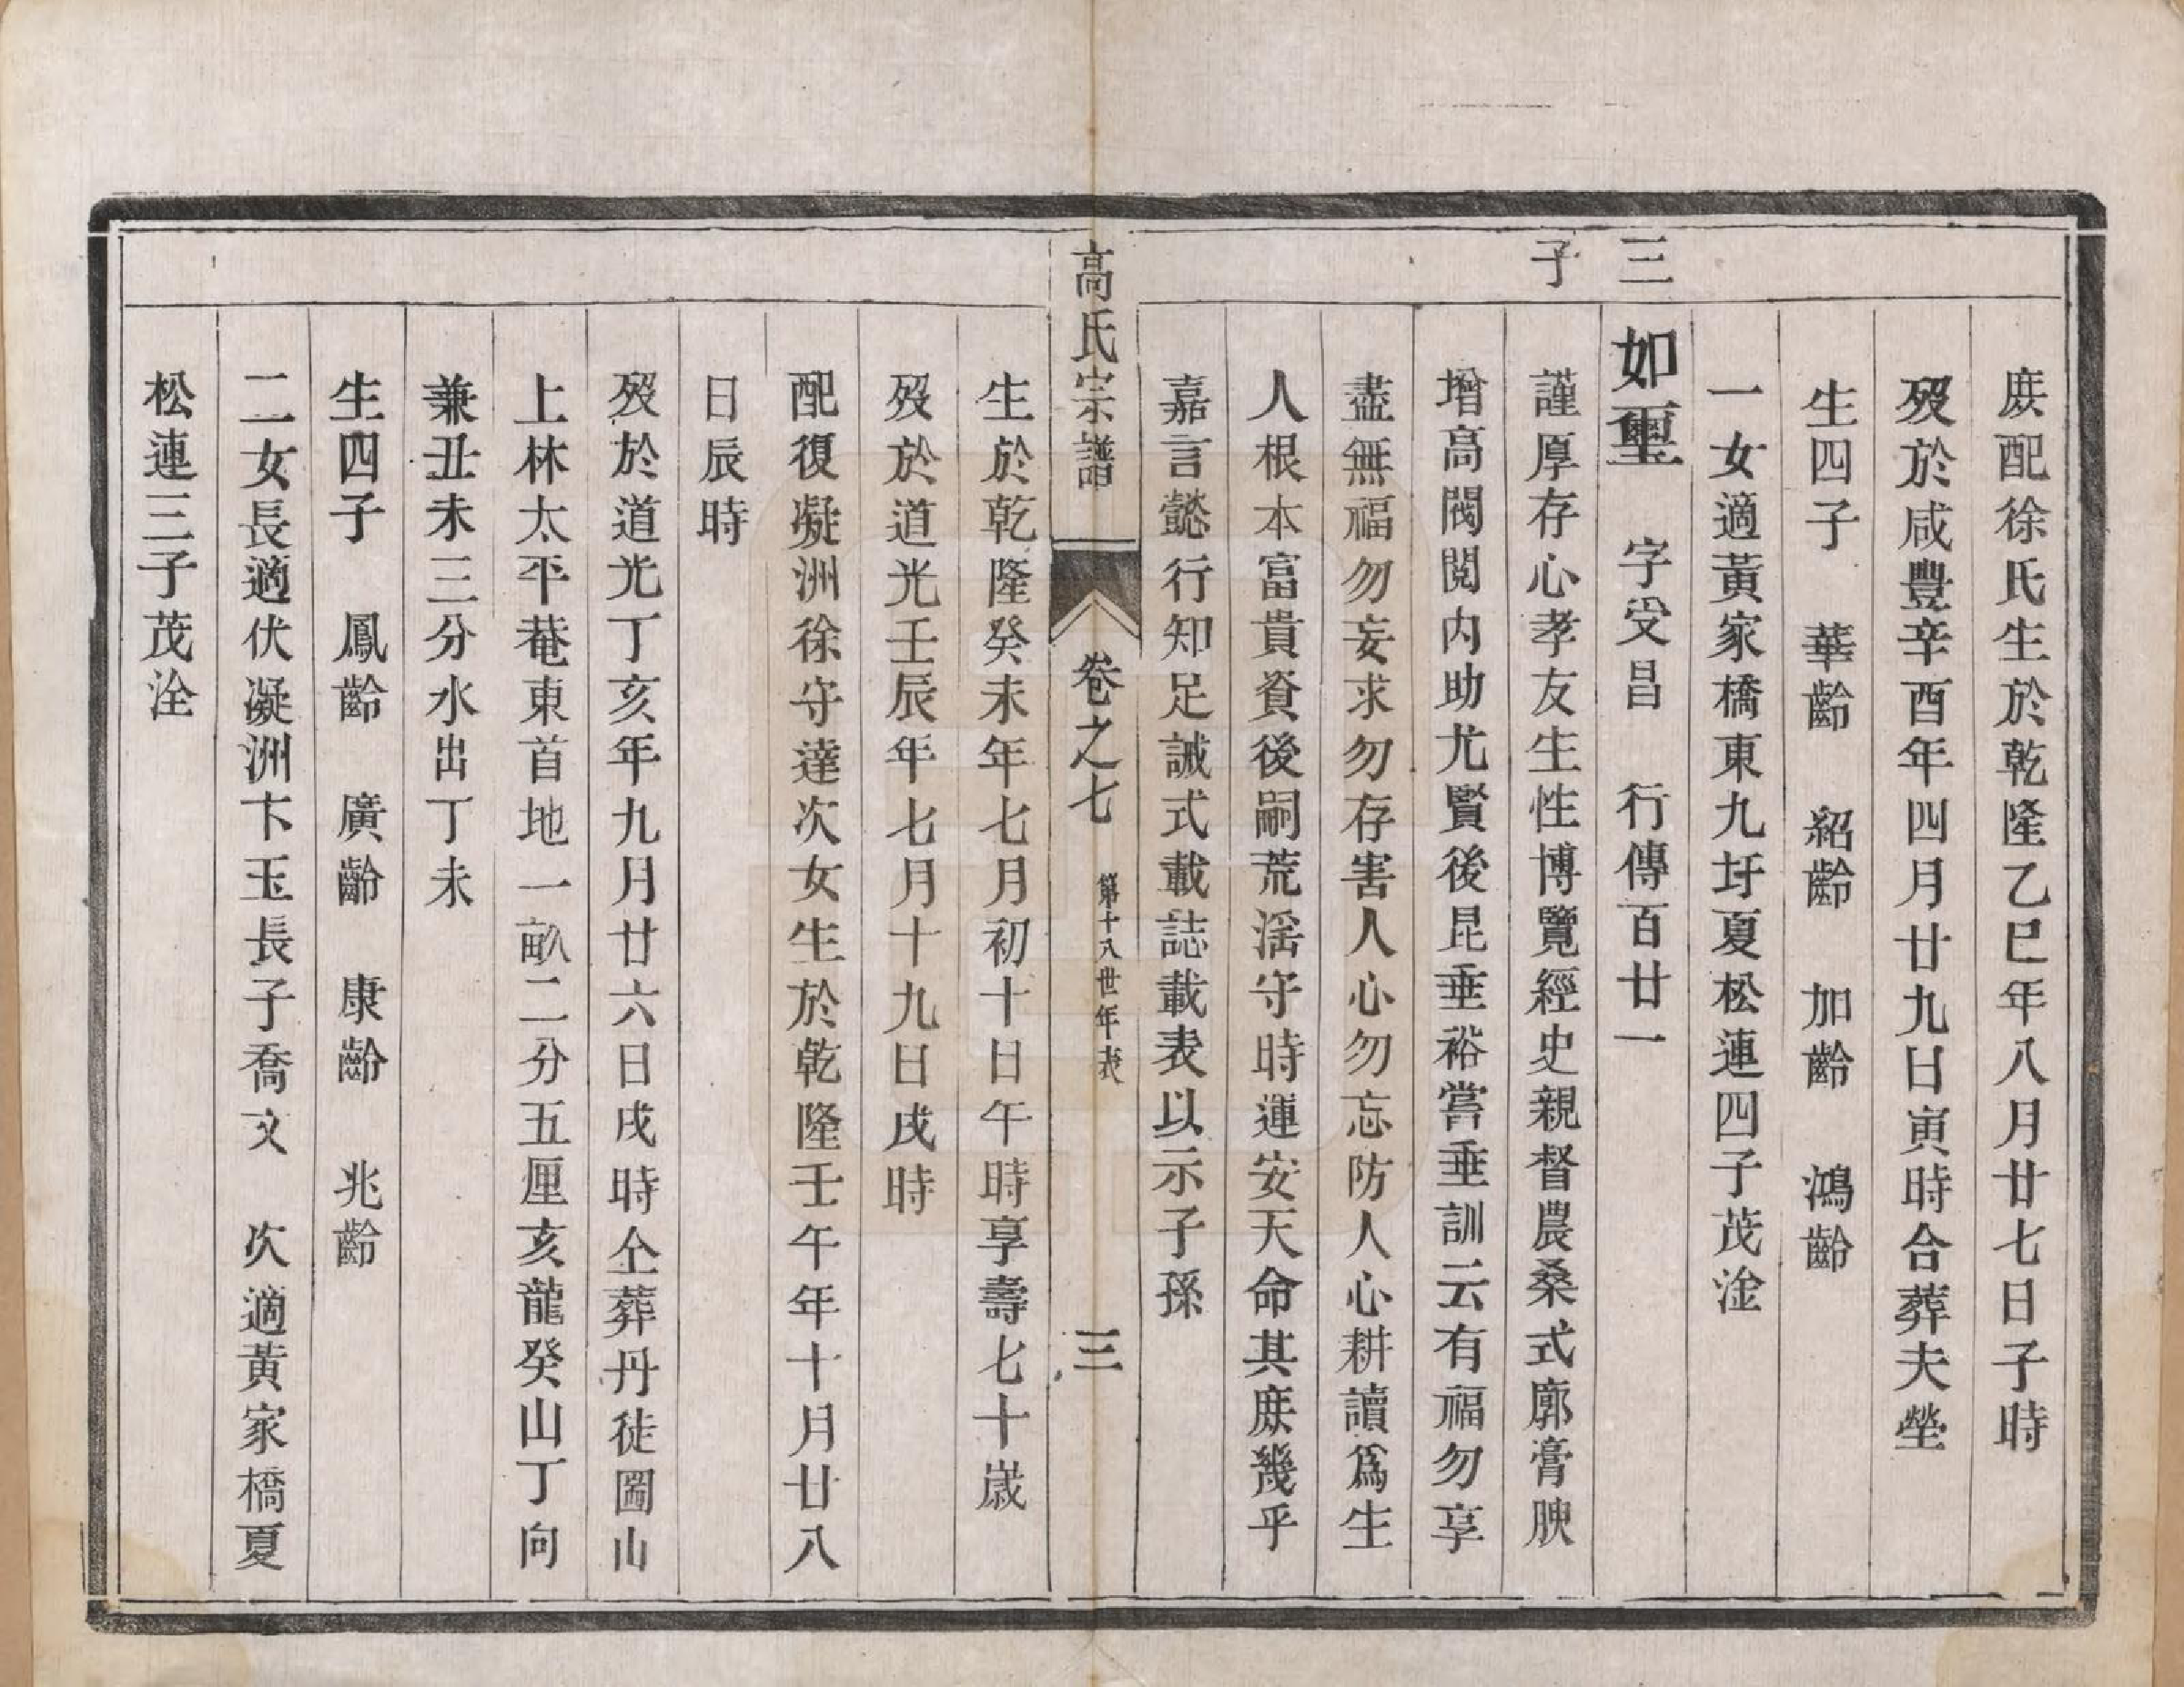 庶配徐氏生於乾隆乙巳年八月廿七日子時
歿於咸豐辛酉年四月廿九日寅時合葬夫塋
生四子　華齡　紹齡　加齡　鴻齡
一女適黃家橋東九圩夏松連四子茂淦
三子
如璽　字受昌　行傳百廿一
謹厚存心孝友生性博覽經史親督農桑式廓膏腴
增高閥閱內助尤賢後昆垂裕嘗垂訓云有福勿享
盡無福勿妄求勿存害人心勿忘防人心耕讀爲生
人根本富貴資後嗣荒淫守時運安天命其庶幾乎
嘉言懿行知足誡式載誌載表以示子孫
高氏宗譜　卷之七　第十八世年表　三
生於乾隆癸未年七月初十日午時享壽七十歲
歿於道光壬辰年七月十九日戌時
配復凝洲徐守達次女生於乾隆壬午年十月廿八
日辰時
歿於道光丁亥年九月廿六日戌時仝葬丹徒圌山
上林太平菴東首地一畝二分五厘亥龍癸山丁向
兼丑未三分水出丁未
生四子　鳳齡　廣齡　康齡　兆齡
二女長適伏凝洲卞玉長子喬文　次適黃家橋夏
松連三子茂洤